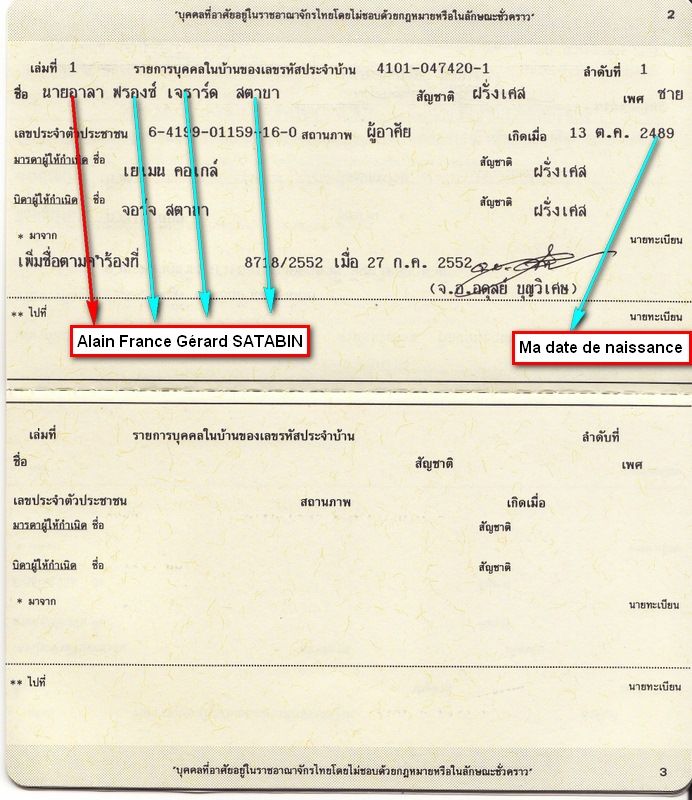 "บุคคลที่อาศัยอยู่ในราชอาณาจักรไทยโดยไม่ชอบด้วยกฎหมายหรือในลักษณะชั่วคราว" 2
เล่มที่ 1 รายการบุคคลในบ้านของเลขรหัสประจำบ้าน 4101-047420-1 ลำดับที่ 1
ชื่อ นายอาลา ฟรองซ์ เจราร์ด สตาบา สัญชาติ ฝรั่งเศส เพศ ชาย
เลขประจำตัวประชาชน 6-4199-01159-16-0 สถานภาพ ผู้อาศัย เกิดเมื่อ 13 ต.ค. 2489
มารดาผู้ให้กำเนิด ชื่อ เยแมน คอเกล์ สัญชาติ ฝรั่งเศส
บิดาผู้ให้กำเนิด ชื่อ จอร์จ สตาบา สัญชาติ ฝรั่งเศส
* มาจาก นายทะเบียน
เพิ่มชื่อตามคำร้องที่ 8718/2552 เมื่อ 27 ก.ค. 2552
(จ.อ.อดุลย์ บุญวิเศษ)
** ไปที่ นายทะเบียน
Alain France Gérard SATABIN
Ma date de naissance
เล่มที่ รายการบุคคลในบ้านของเลขรหัสประจำบ้าน ลำดับที่
ชื่อ สัญชาติ เพศ
เลขประจำตัวประชาชน สถานภาพ เกิดเมื่อ
มารดาผู้ให้กำเนิด ชื่อ สัญชาติ
บิดาผู้ให้กำเนิด ชื่อ สัญชาติ
* มาจาก นายทะเบียน
** ไปที่ นายทะเบียน
"บุคคลที่อาศัยอยู่ในราชอาณาจักรไทยโดยไม่ชอบด้วยกฎหมายหรือในลักษณะชั่วคราว" 3